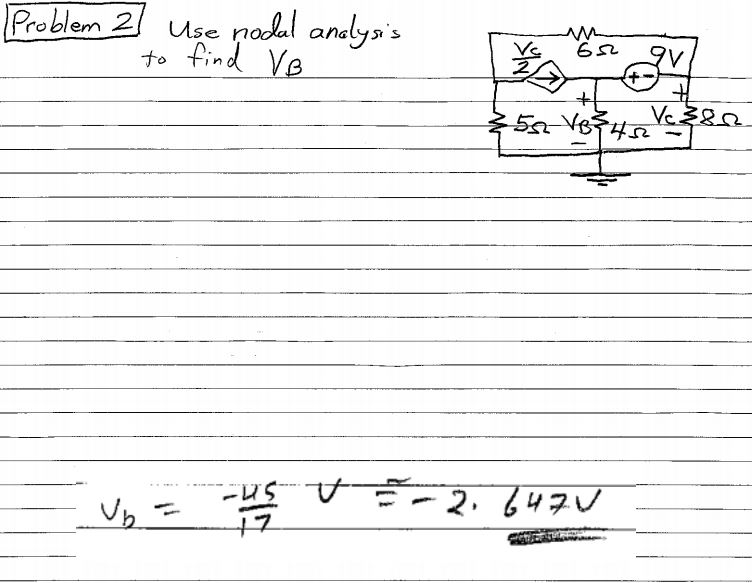 Problem 2 Use nodal analysis
to find VB
6Ω
Vc/2
9V
+ -
+
+
5Ω
VB
4Ω
Vc
8Ω
-
-
Vb = -45/17 V ≅ -2.647V